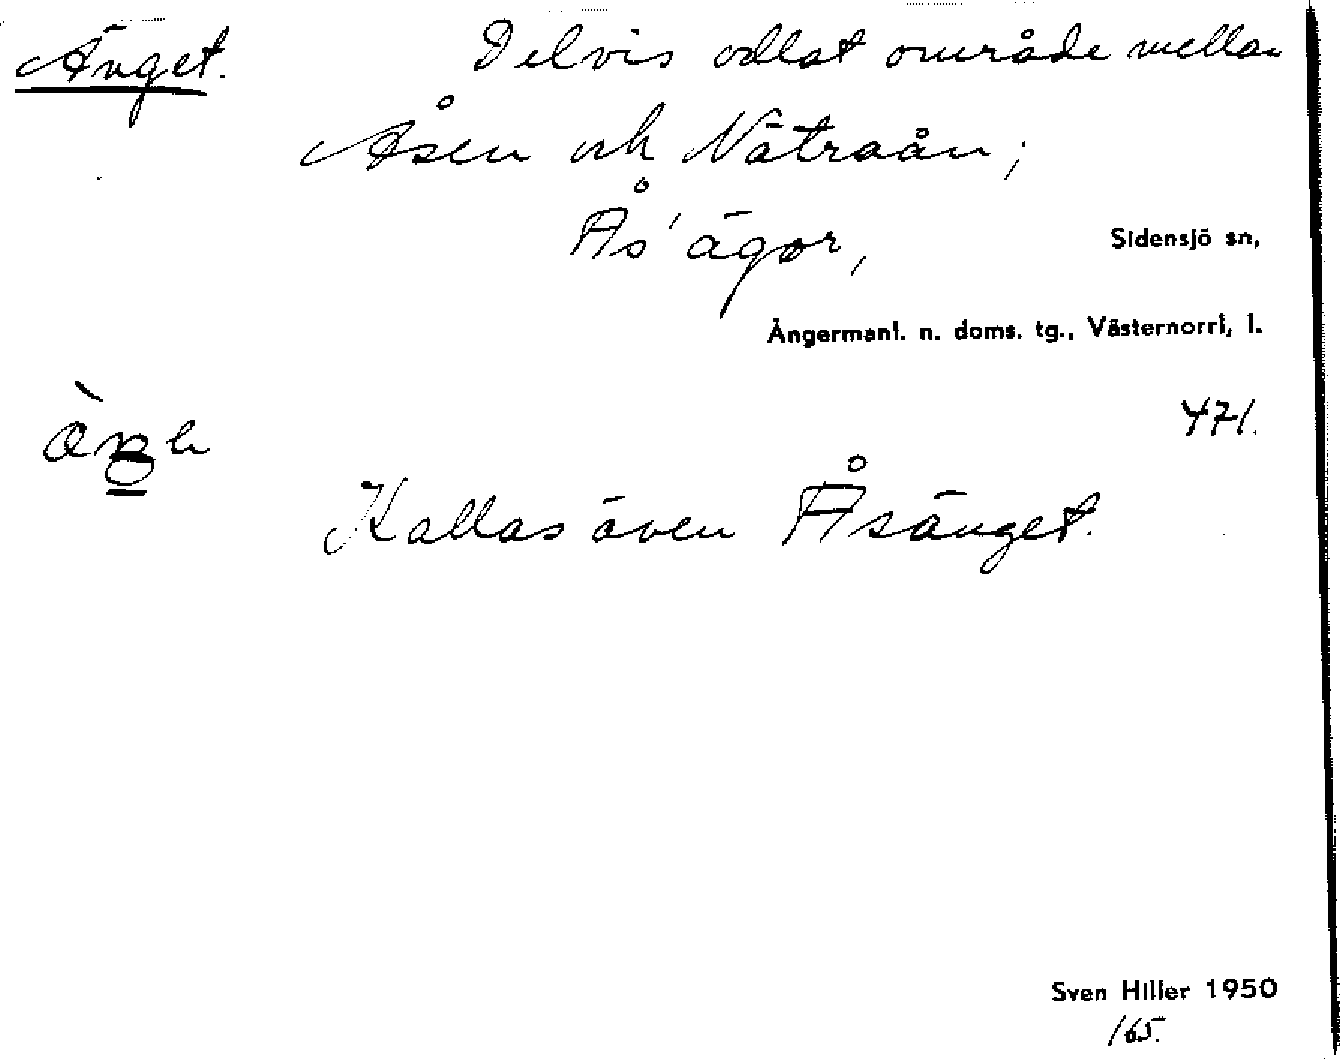 Änget. Delvis odlat område mellan
Åsen och Nätraån;
Ås' ägor,
Sidensjö sn,
Ångermanl. n. doms. tg., Västernorrl, l.
471.
Kallas även Åsänget.
Sven Hiller 1950
165.